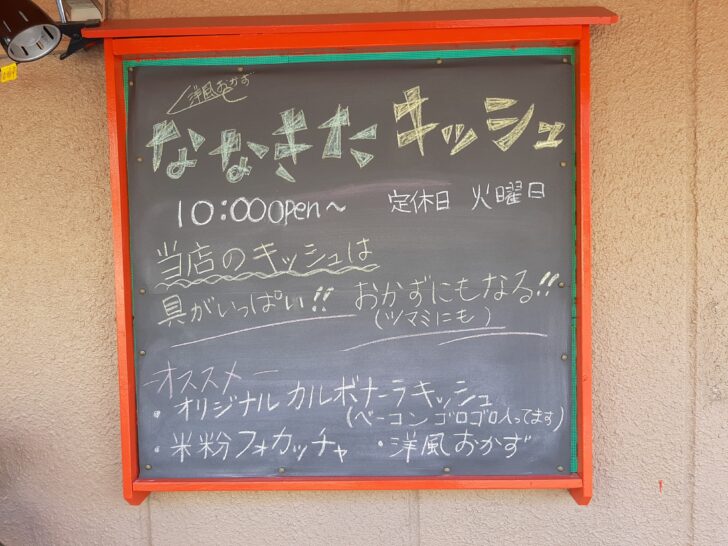 洋風おかず
ななきた キッシュ
10:00open〜 定休日 火曜日
当店のキッシュは
具がいっぱい!! おかずにもなる!!
(ツマミにも)
オススメ
・オリジナル カルボナーラキッシュ
(ベーコン ゴロゴロ入ってます)
・米粉フォカッチャ ・洋風おかず